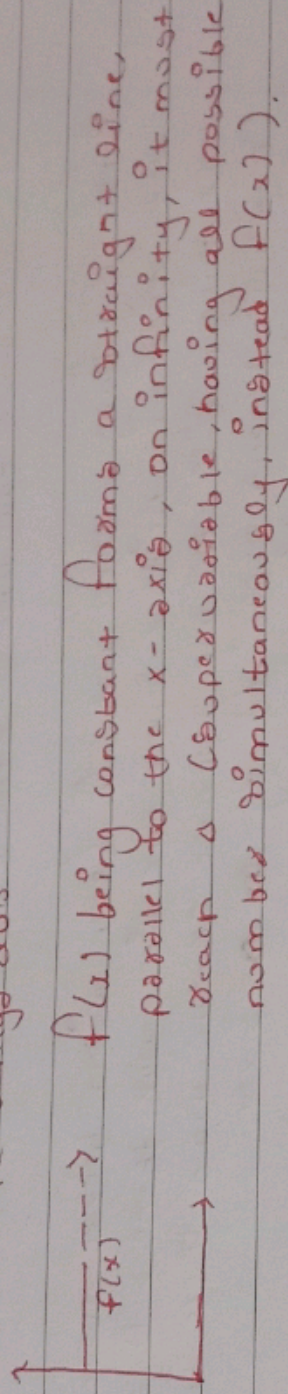 f(x) being constant forms a straight line,
parallel to the x-axis, on infinity, it must
reach Δ (supervariable, having all possible
number simultaneously, instead f(x)).
f(x)